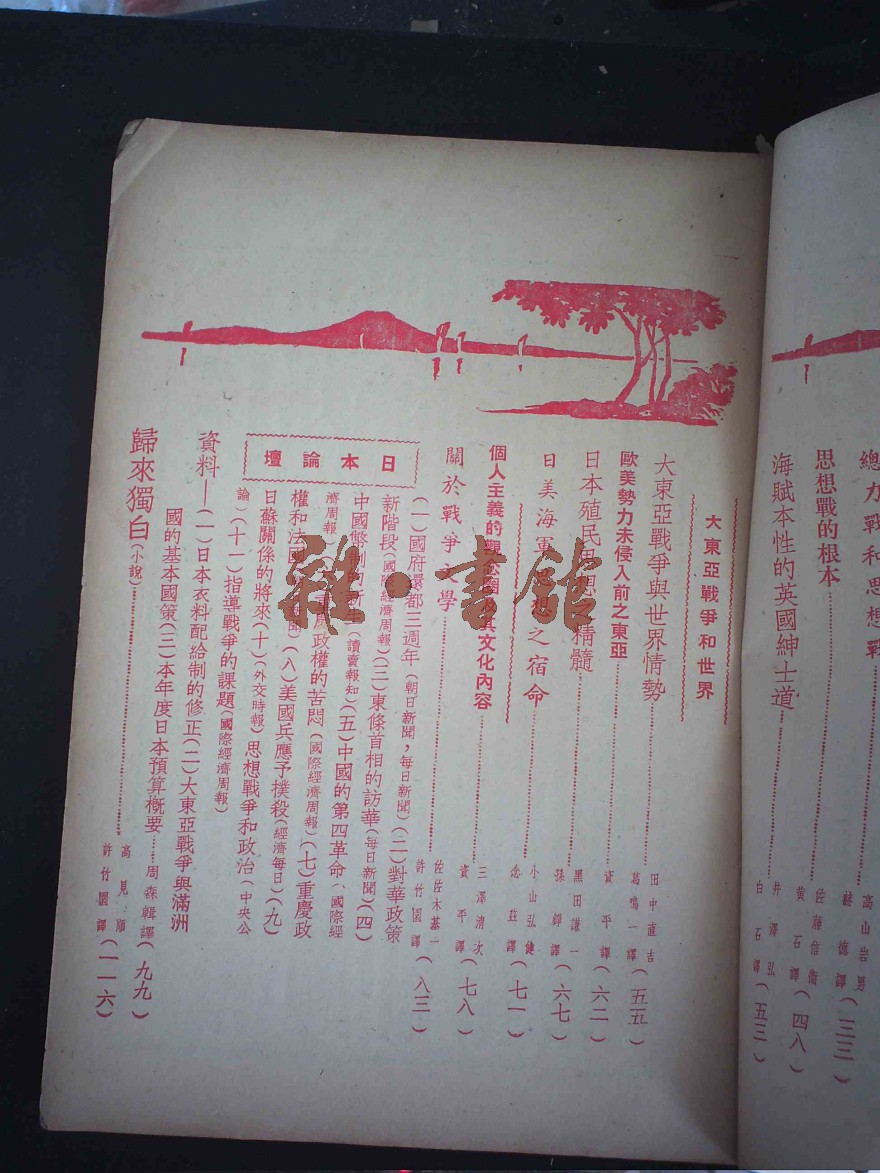 總力戰和思想戰
高山岩男
赫德譯(三三)
思想戰的根本
佐藤信衛
黄石譯(四八)
海賊本性的英國紳士道
井澤弘
白石譯(五三)
大東亞戰爭和世界
大東亞戰爭與世界情勢
田中直吉
葛鳴一譯(五五)
歐美勢力未侵入前之東亞
資平譯(六二)
日本殖民思想之精髓
黑田謙一
孫錚譯(六七)
日美海軍思想之宿命
小山弘健
念益譯(七一)
個人主義的 及其文化內容
三澤清次
資平譯(七八)
關於戰爭文學
佐佐木基一
許竹園譯(八三)
日本論壇
(一)國府還都三週年(朝日新聞,每日新聞)(二)對華政策
新階段(國際經濟周報)(三)東條首相的訪華(每日新聞)(四)
中國幣制 (讀賣報知)(五)中國的第四革命(國際經
濟周報)( 政權的苦悶(國際經濟周報)(七)重慶政
權和法國 新聞)(八)美國兵應予撲殺(經濟每日)(九)
日蘇關係的將來(十)(外交時報)思想戰爭和政治(中央公
論)(十一)指導戰爭的課題(國際經濟周報)
資料—(一)日本衣料配給制的修正(二)大東亞戰爭與滿洲
國的基本國策(三)本年度日本預算概要……周森輯譯(九九)
歸來獨白(小說)
高見順
許竹園譯(一一六)
雜·書館